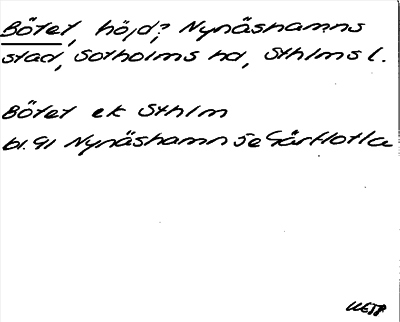 Bötet, höjd? Nynäshamns
stad, Sotholms hd, Sthlms l.
Bötet ek Sthlm
bl. 91 Nynäshamn SE